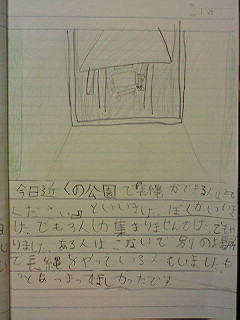 今日近くの公園で長縄ができる人はきて
ください。」といいました。ぼくがいいま
した。でも3人しか集まりませんでした。でもや
りました。ある人はこないで別の場所
で長縄をやっている人もいました。も
っとあつまってほしかったです。